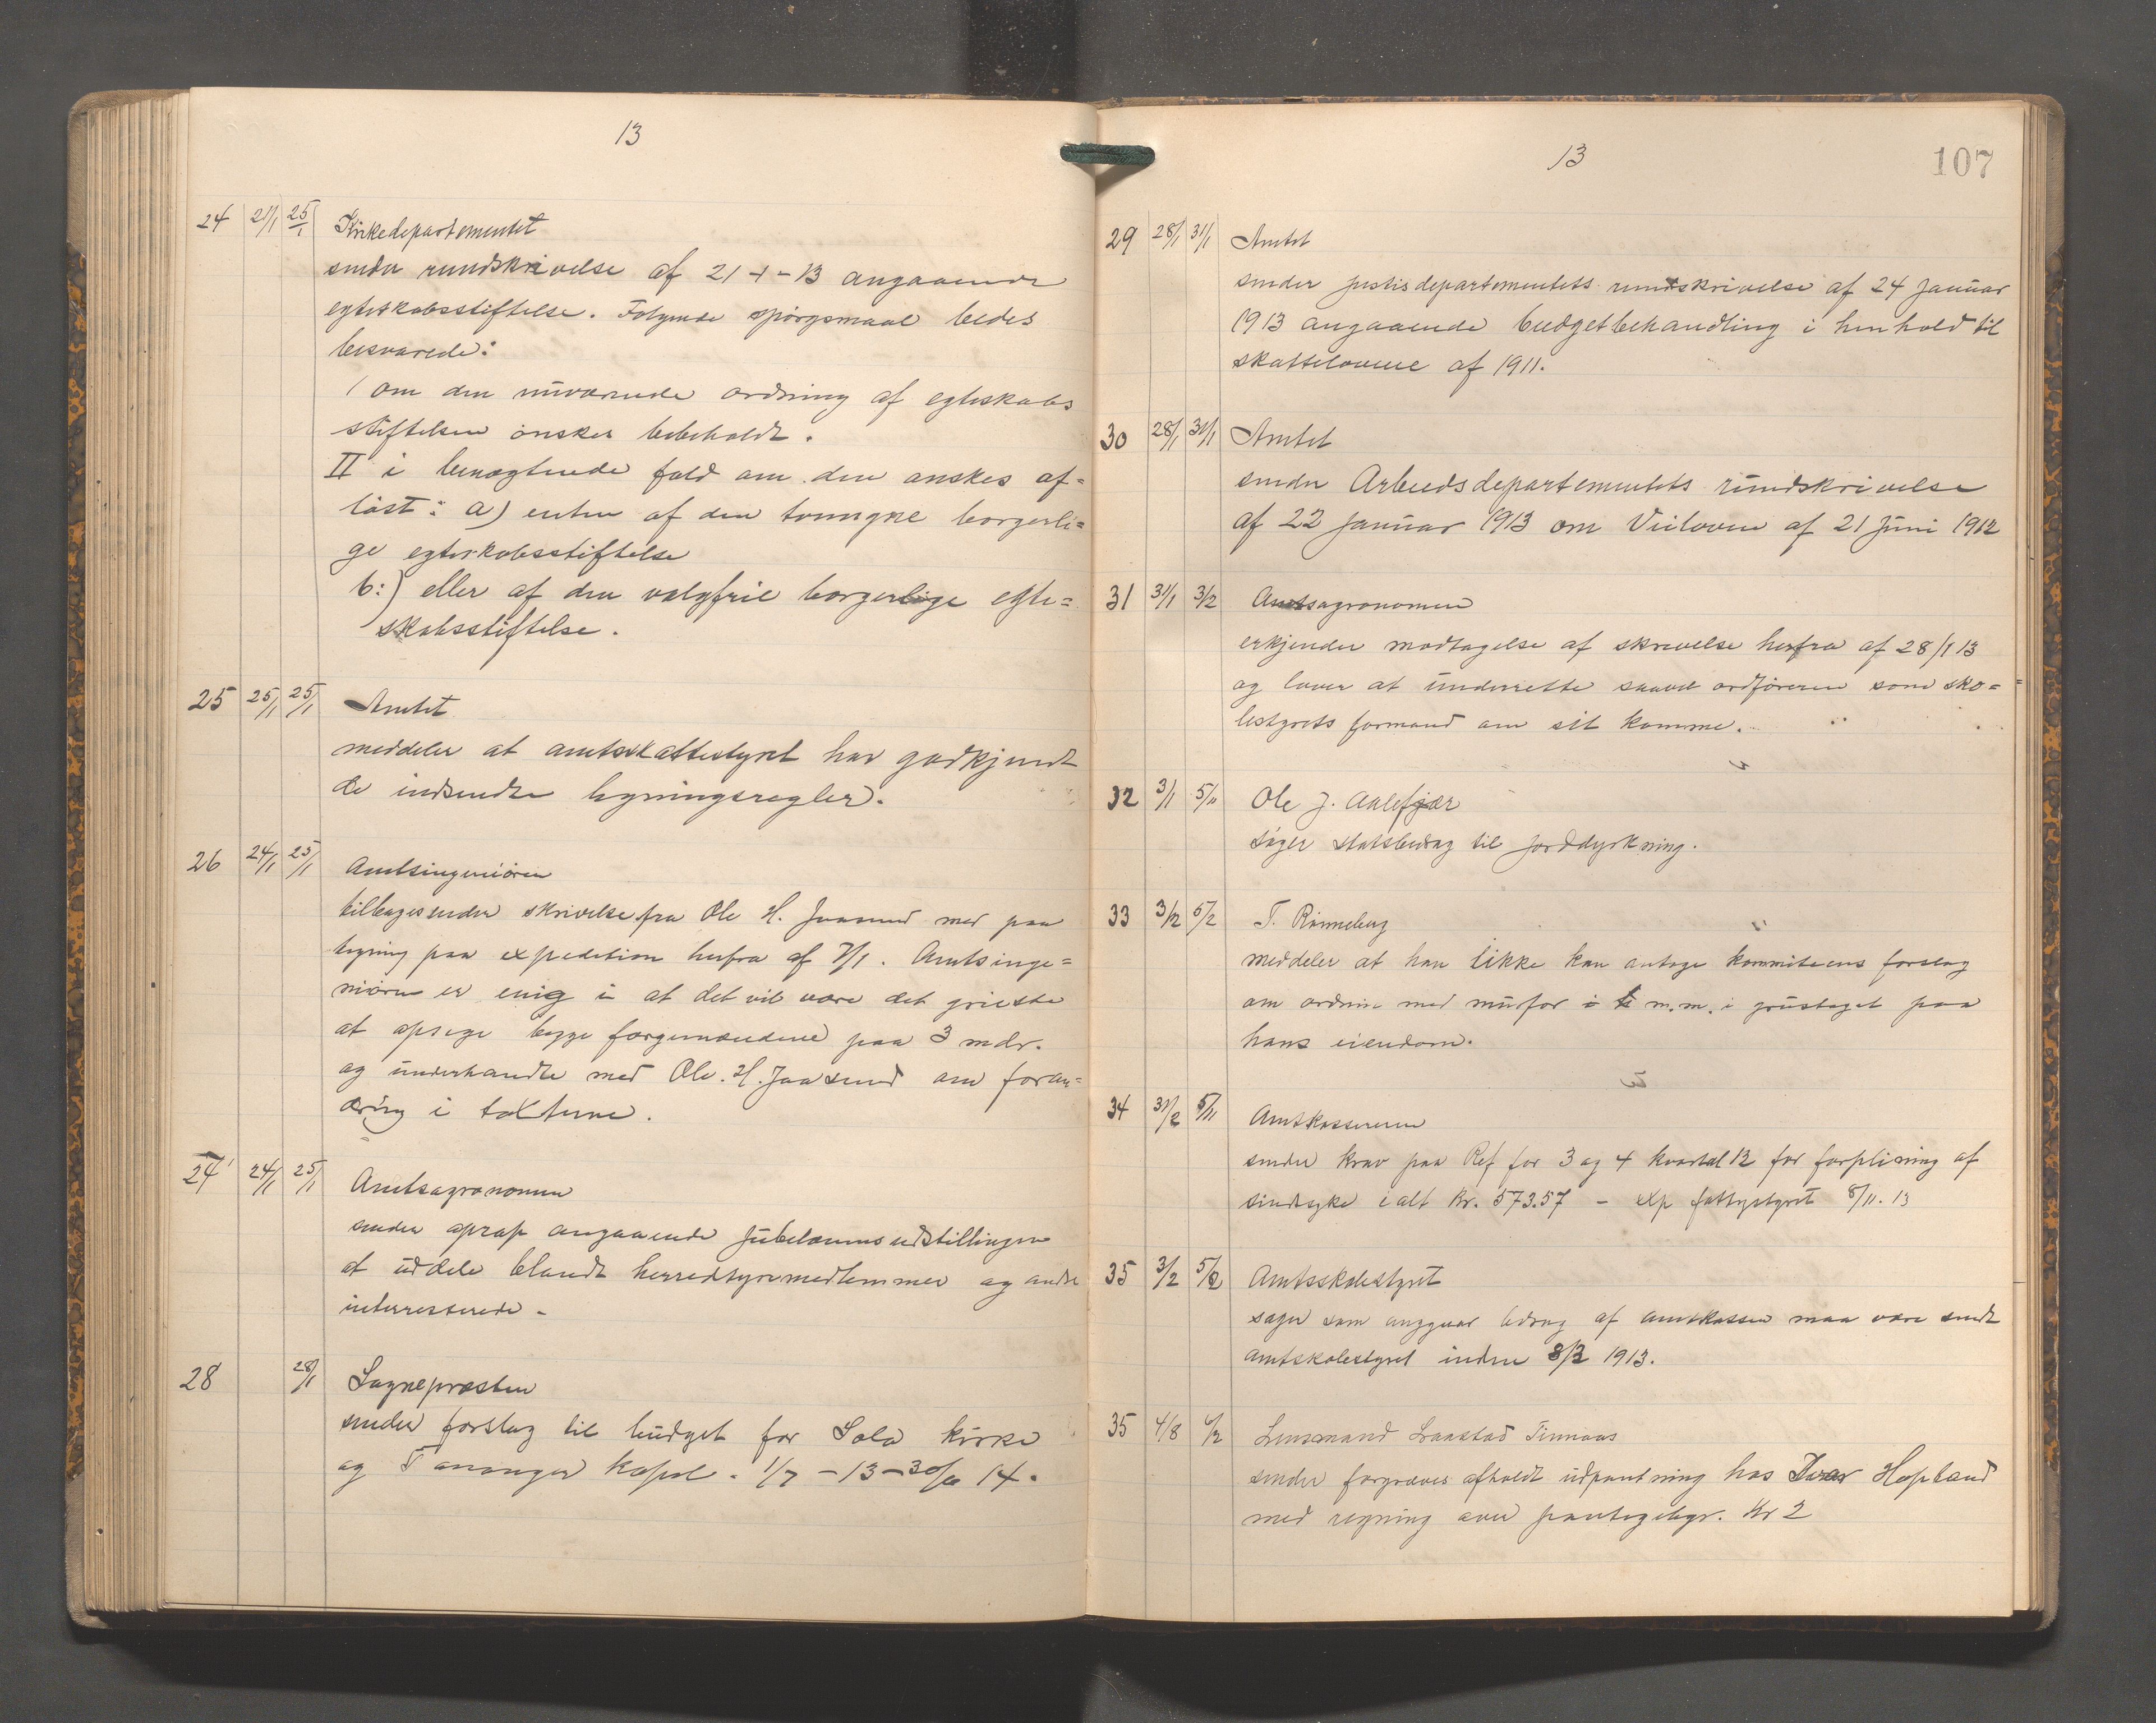 13
24 21/1 25/1 Kirkedepartementet
sender rundskrivelse af 21-1-13 angaaende
egteskabsstiftelse. Følgende spörgsmaal bedes
besvarede:
I om den nuværende ordning af egteskabs
stiftelsen önskes bibeholdt.
II i benægtende fald om den ønskes af=
löst: a) enten af den tvungne borgerli=
ge egteskabsstiftelse
b:) eller af den valgfrie borgerlige egte=
skabsstiftelse.
25 25/1 25/1 Amtet
meddeler at amtsskattestyret har godkjendt
de indsendte ligningsregler.
26 24/1 25/1 Amtsingeniören
tilbagesender skrivelse fra Ole H. Jaasund med paa
tegning paa expedition herfra af 7/1. Amtsinge=
niören er enig i at det vil være det greieste
at opsige begge forgjmændene paa 3 mdr.
og underhandle med Ole. H. Jaasund om foran=
dring i taksterne.
27 24/1 25/1 Amtsagronomen
sender oprop angaaende Jubelæumsudstillingen
at uddele blandt herredstyremedlemmer og andre
interresserede -
28 28/1 Sognepræsten
sender forslag til budget for Sola kirke
og Tananger kapel. 1/7 - 13 - 30/6 14.
13
107
29 28/1 31/1 Amtet
sender justisdepartementets rundskrivelse af 24 Januar
1913 angaaende budgetbehandling i henhold til
skattelovene af 1911.
30 28/1 31/1 Amtet
sender Arbeidsdepartementets rundskrivelse
af 22 januar 1913 om Veiloven af 21 Juni 1912
31 31/1 3/2 Amtsagronomen
erkjender modtagelse af skrivelse herfra af 28/1 13
og lover at underrette saavel ordföreren som sko=
lestyrets formand om sit komme.
32 3/1 5/11 Ole J. Aalefjær
söger statsbidrag til jorddyrkning.
33 3/2 5/2 T. Rönneberg
meddeler at han ikke kan antage kommiteens forslag
om ordning med m.m. i grustaget paa
hans eiendom.
34 31/2 5/11 Amtkassereren
sender krav paa Ref for 3 og 4 kvartal 12 for forpleining af
sindsyke i alt Kr. 573.57 - exp fattigstyret 8/11. 13
35 3/2 5/2 Amtsskolestyret
sager som angaar bidrag af amtskassen maa være sendt
amtskolestyret inden 8/3 1913.
35 4/8 6/2 Lensmand Traastad
sender forgjæves afholdt udpantning hos Ivar Hopland
med regning over pantegebyr. Kr 2